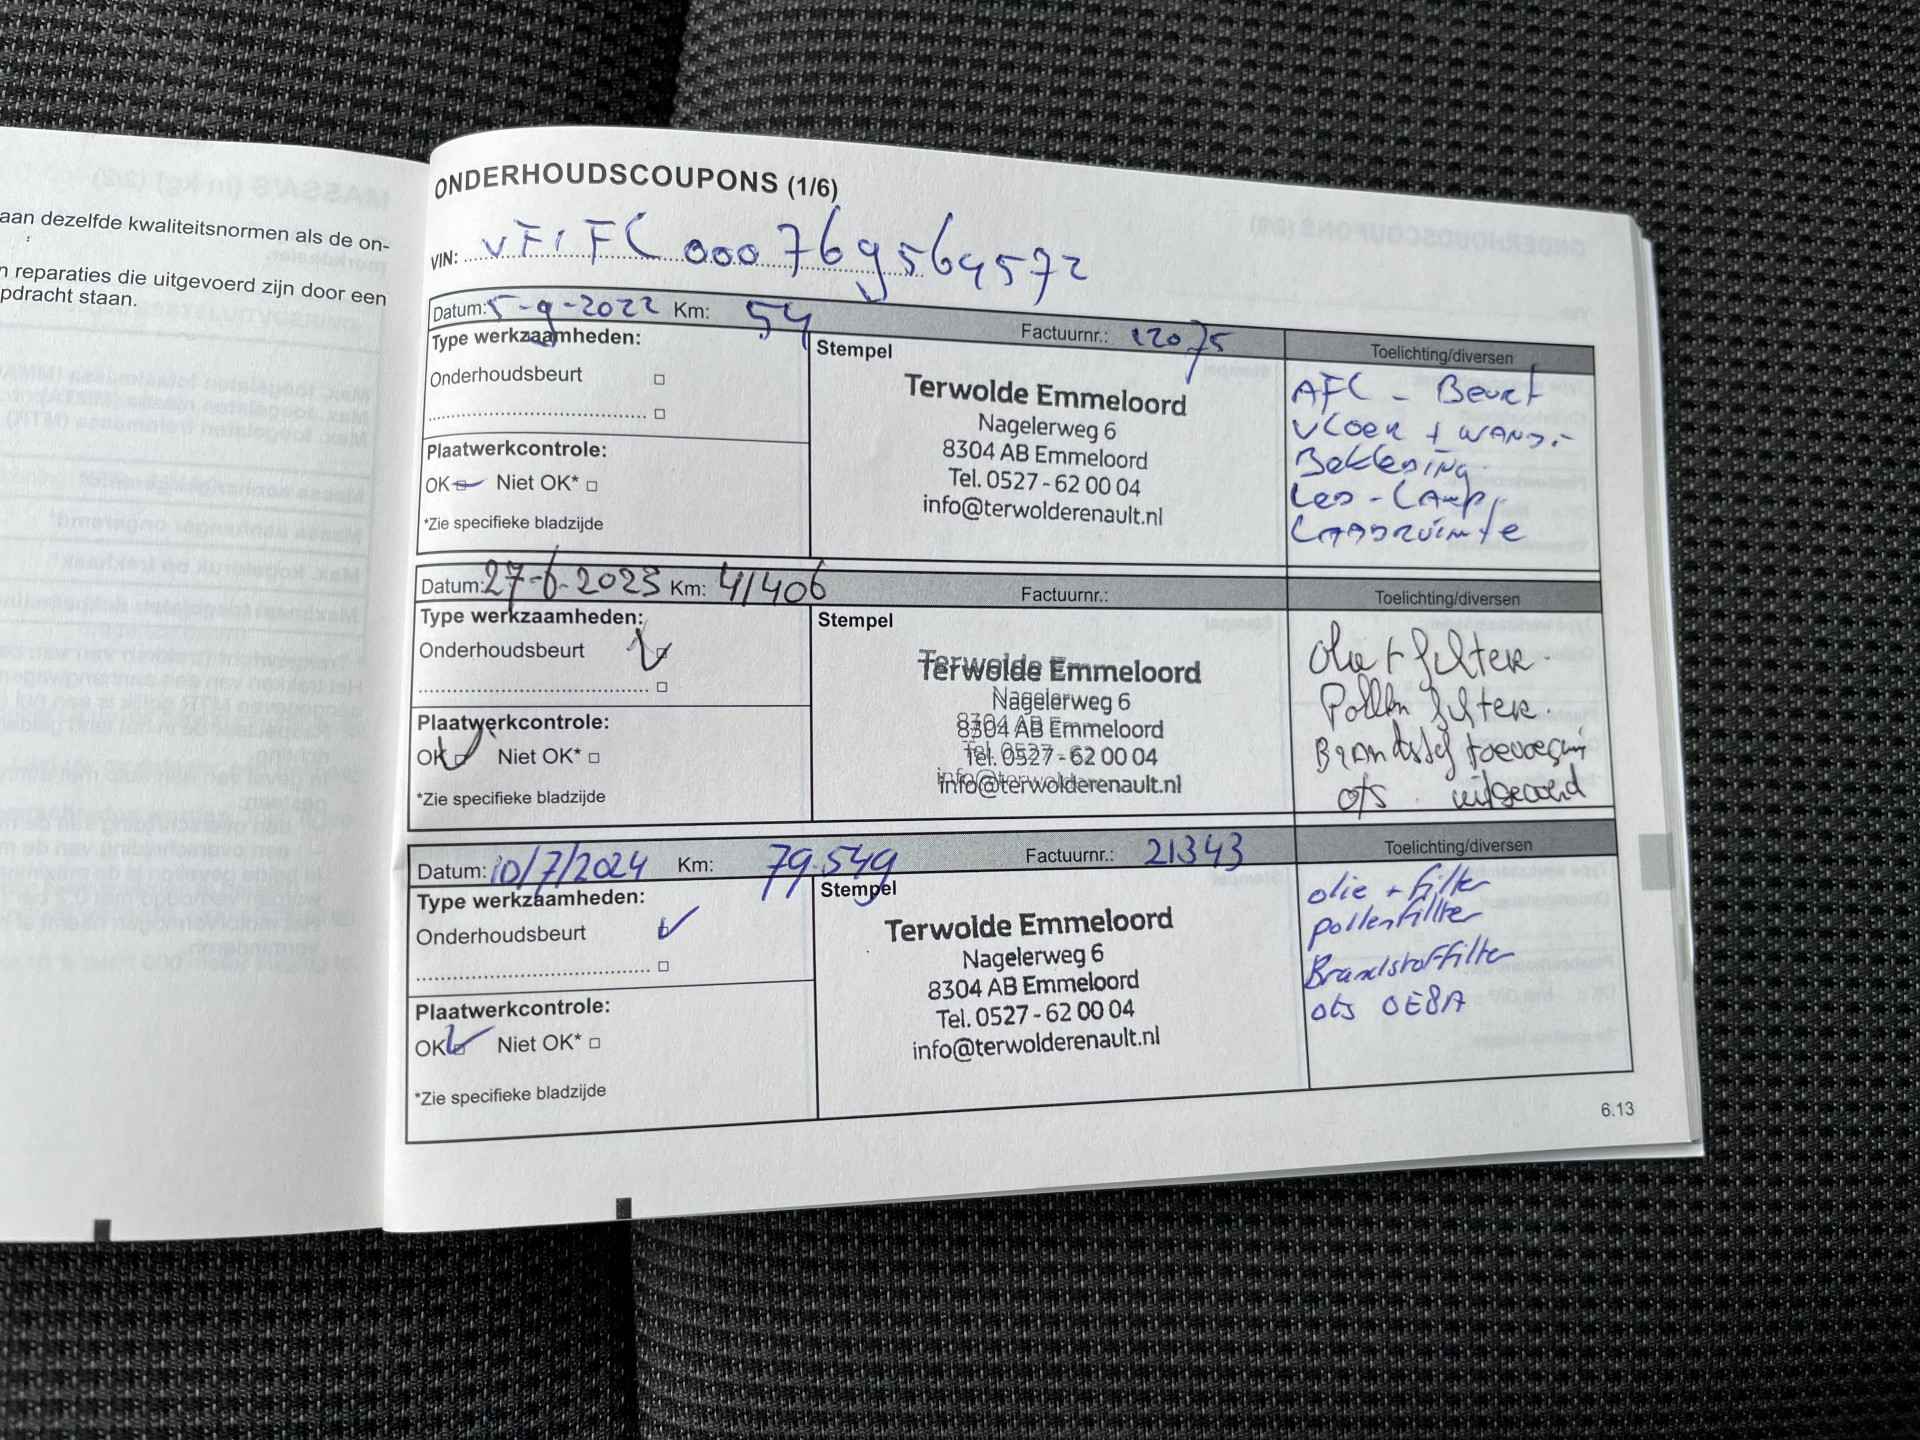 aan dezelfde kwaliteitsnormen als de on-
n reparaties die uitgevoerd zijn door een
pdracht staan.
ONDERHOUDSCOUPONS (1/6)
VIN: VF1FC000769564572
Datum: 5-9-2022 Km: 54 Factuurnr.: 12075 Toelichting/diversen
Type werkzaamheden:
Onderhoudsbeurt
Plaatwerkcontrole:
OK Niet OK*
*Zie specifieke bladzijde
Stempel
Terwolde Emmeloord
Nagelerweg 6
8304 AB Emmeloord
Tel. 0527 - 62 00 04
info@terwolderenault.nl
AFL - Beurt
Vloer + wand -
Bekleding
Led - Lamp
Laadruimte
Datum: 27-6-2023 Km: 41406 Factuurnr.: Toelichting/diversen
Type werkzaamheden:
Onderhoudsbeurt
Plaatwerkcontrole:
OK Niet OK*
*Zie specifieke bladzijde
Stempel
Terwolde Emmeloord
Nagelerweg 6
8304 AB Emmeloord
Tel. 0527 - 62 00 04
info@terwolderenault.nl
Olie + filter.
Pollen filter.
ots. uitgevoerd
Datum: 10/7/2024 Km: 79.549 Factuurnr.: 21343 Toelichting/diversen
Type werkzaamheden:
Onderhoudsbeurt
Plaatwerkcontrole:
OK Niet OK*
*Zie specifieke bladzijde
Stempel
Terwolde Emmeloord
Nagelerweg 6
8304 AB Emmeloord
Tel. 0527 - 62 00 04
info@terwolderenault.nl
olie + filter
pollenfilter
Brandstoffilter
ots 0E8A
6.13